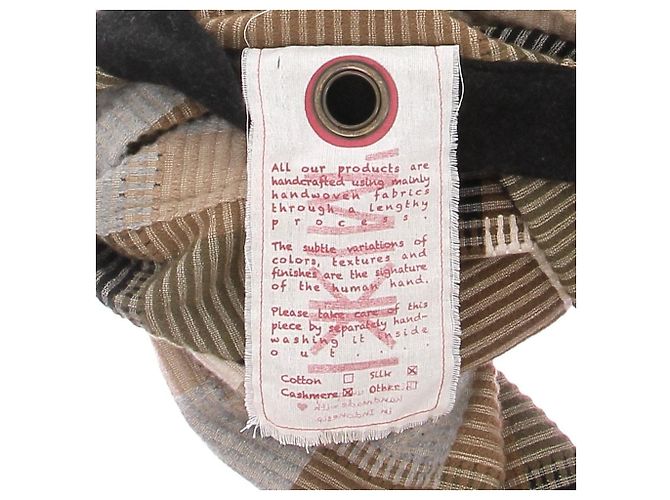 All our products are
handcrafted using mainly
handwoven fabrics
through a lengthy
process.
The subtle variations of
colors, textures and
finishes are the signature
of the human hand.
Please take care of this
piece by separately hand-
washing it inside
out....
Cotton ☐ Silk ☒
Cashmere ☒ Other ☐